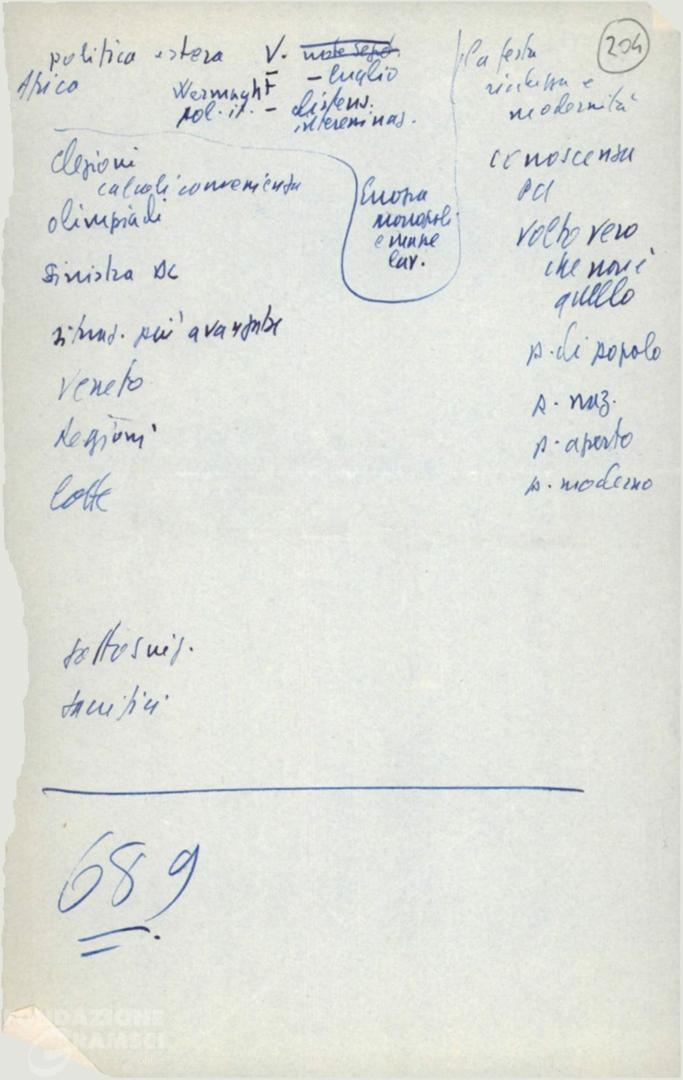 204
politica estera V. note segr.
Africa
– luglio
pol. it. – distens.
intereninas.
elezioni
calcoli convenienza
olimpiadi
sinistra DC
situaz. più avanzate
Veneto
Regioni
lotte
Europa
monopoli
e masse
lav.
la festa
ricchezza e
modernità
conoscenza
PCI
volto vero
che non è
quello
p. di popolo
p. naz.
p. aperto
p. moderno
sottoscriz.
sacrifici
689
FONDAZIONE
GRAMSCI